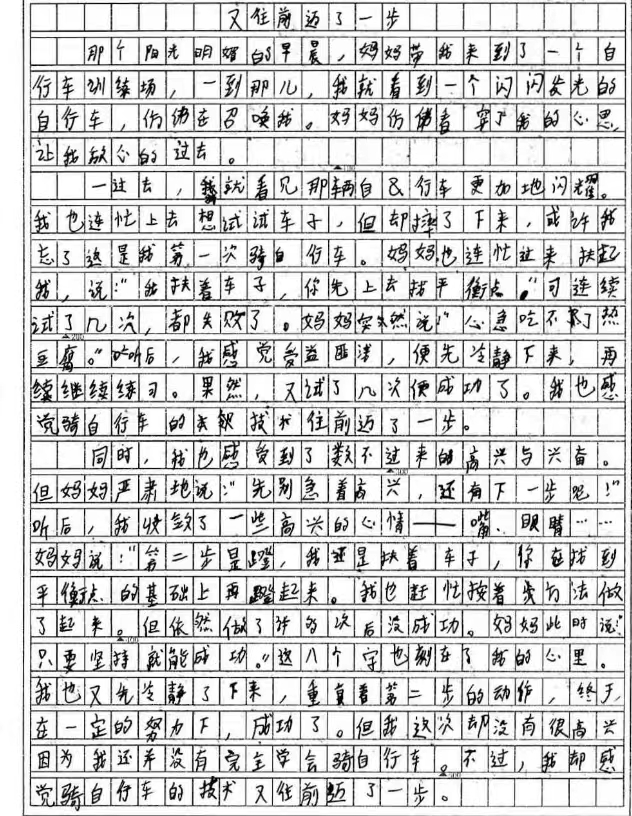 又往前迈了一步
那个阳光明媚的早晨，妈妈带我来到了一个自
行车训练场，一到那儿，我就看到一个闪闪发光的
自行车，仿佛在召唤我。妈妈仿佛看穿了我的心思，
让我放心的过去。
一过去，我就看见那辆自行车更加地闪耀。
我也连忙上去想试试车子，但却摔了下来，或许我
忘了这是我第一次骑自行车。妈妈也连忙过来扶起
我，说：“我扶着车子，你先上去找平衡点。”可连续
试了几次，都失败了。妈妈突然说“心急吃不了热
豆腐。”听后，我感觉受益匪浅，便先冷静下来，再
续继续练习。果然，又试了几次便成功了。我也感
觉骑自行车的关键技术往前迈了一步。
同时，我也感受到了数不过来的高兴与兴奋。
但妈妈严肃地说：“先别急着高兴，还有下一步呢！”
听后，我收敛了一些高兴的心情——嘴、眼睛……
妈妈说：“第二步是蹬，我还是扶着车子，你在找到
平衡点的基础上再蹬起来。我也赶忙按着步方法做
了起来。但依然做了许多次后没成功。妈妈此时说：
只要坚持就能成功。”这八个字也刻在了我的心里。
我也又先冷静了下来，重复着第二步的动作，终于，
在一定的努力下，成功了。但我这次却没有很高兴
因为我还并没有完全学会骑自行车。不过，我却感
觉骑自行车的技术又往前迈了一步。